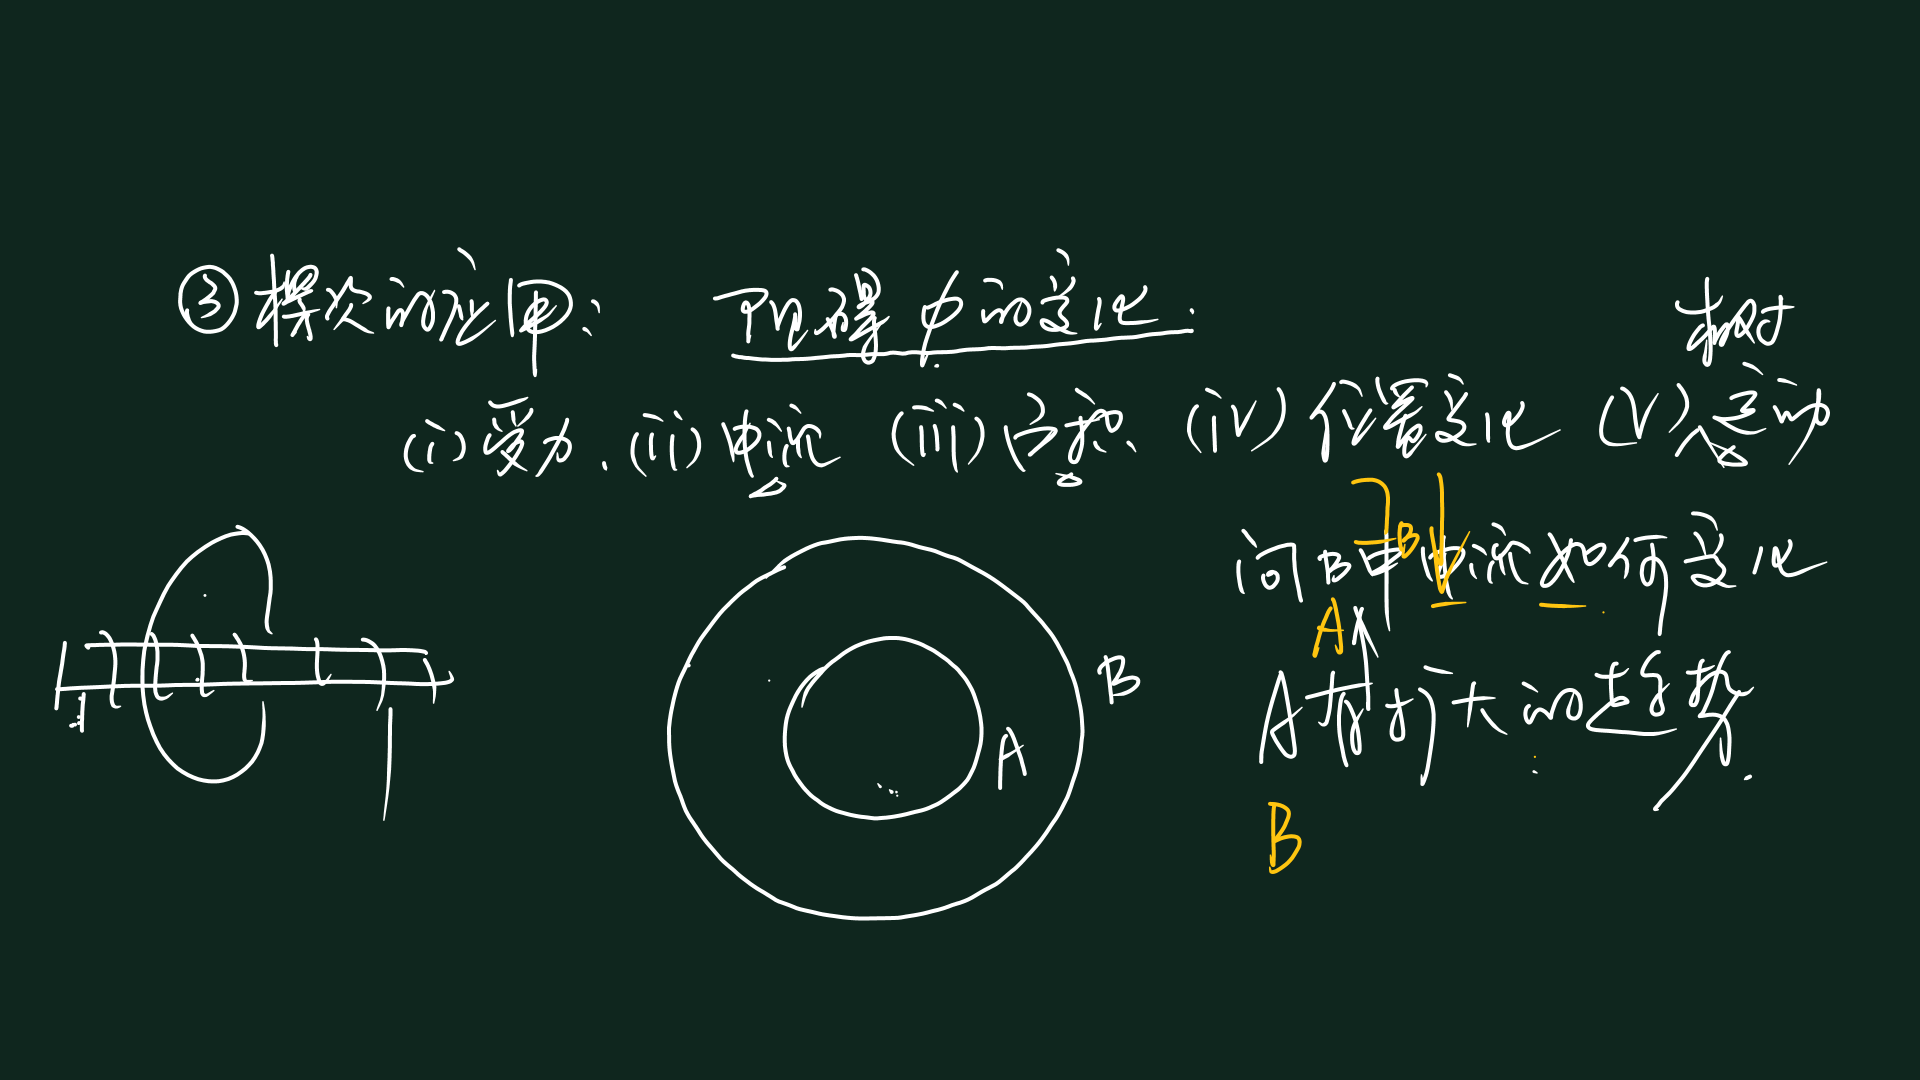 ③楞次的应用: 阻碍φ的变化.
相对
(i)受力.(ii)电流 (iii)自旋、(iv)位置变化 (V)运动
问B中电流如何变化
B
A
A有扩大的趋势.
B
B
A